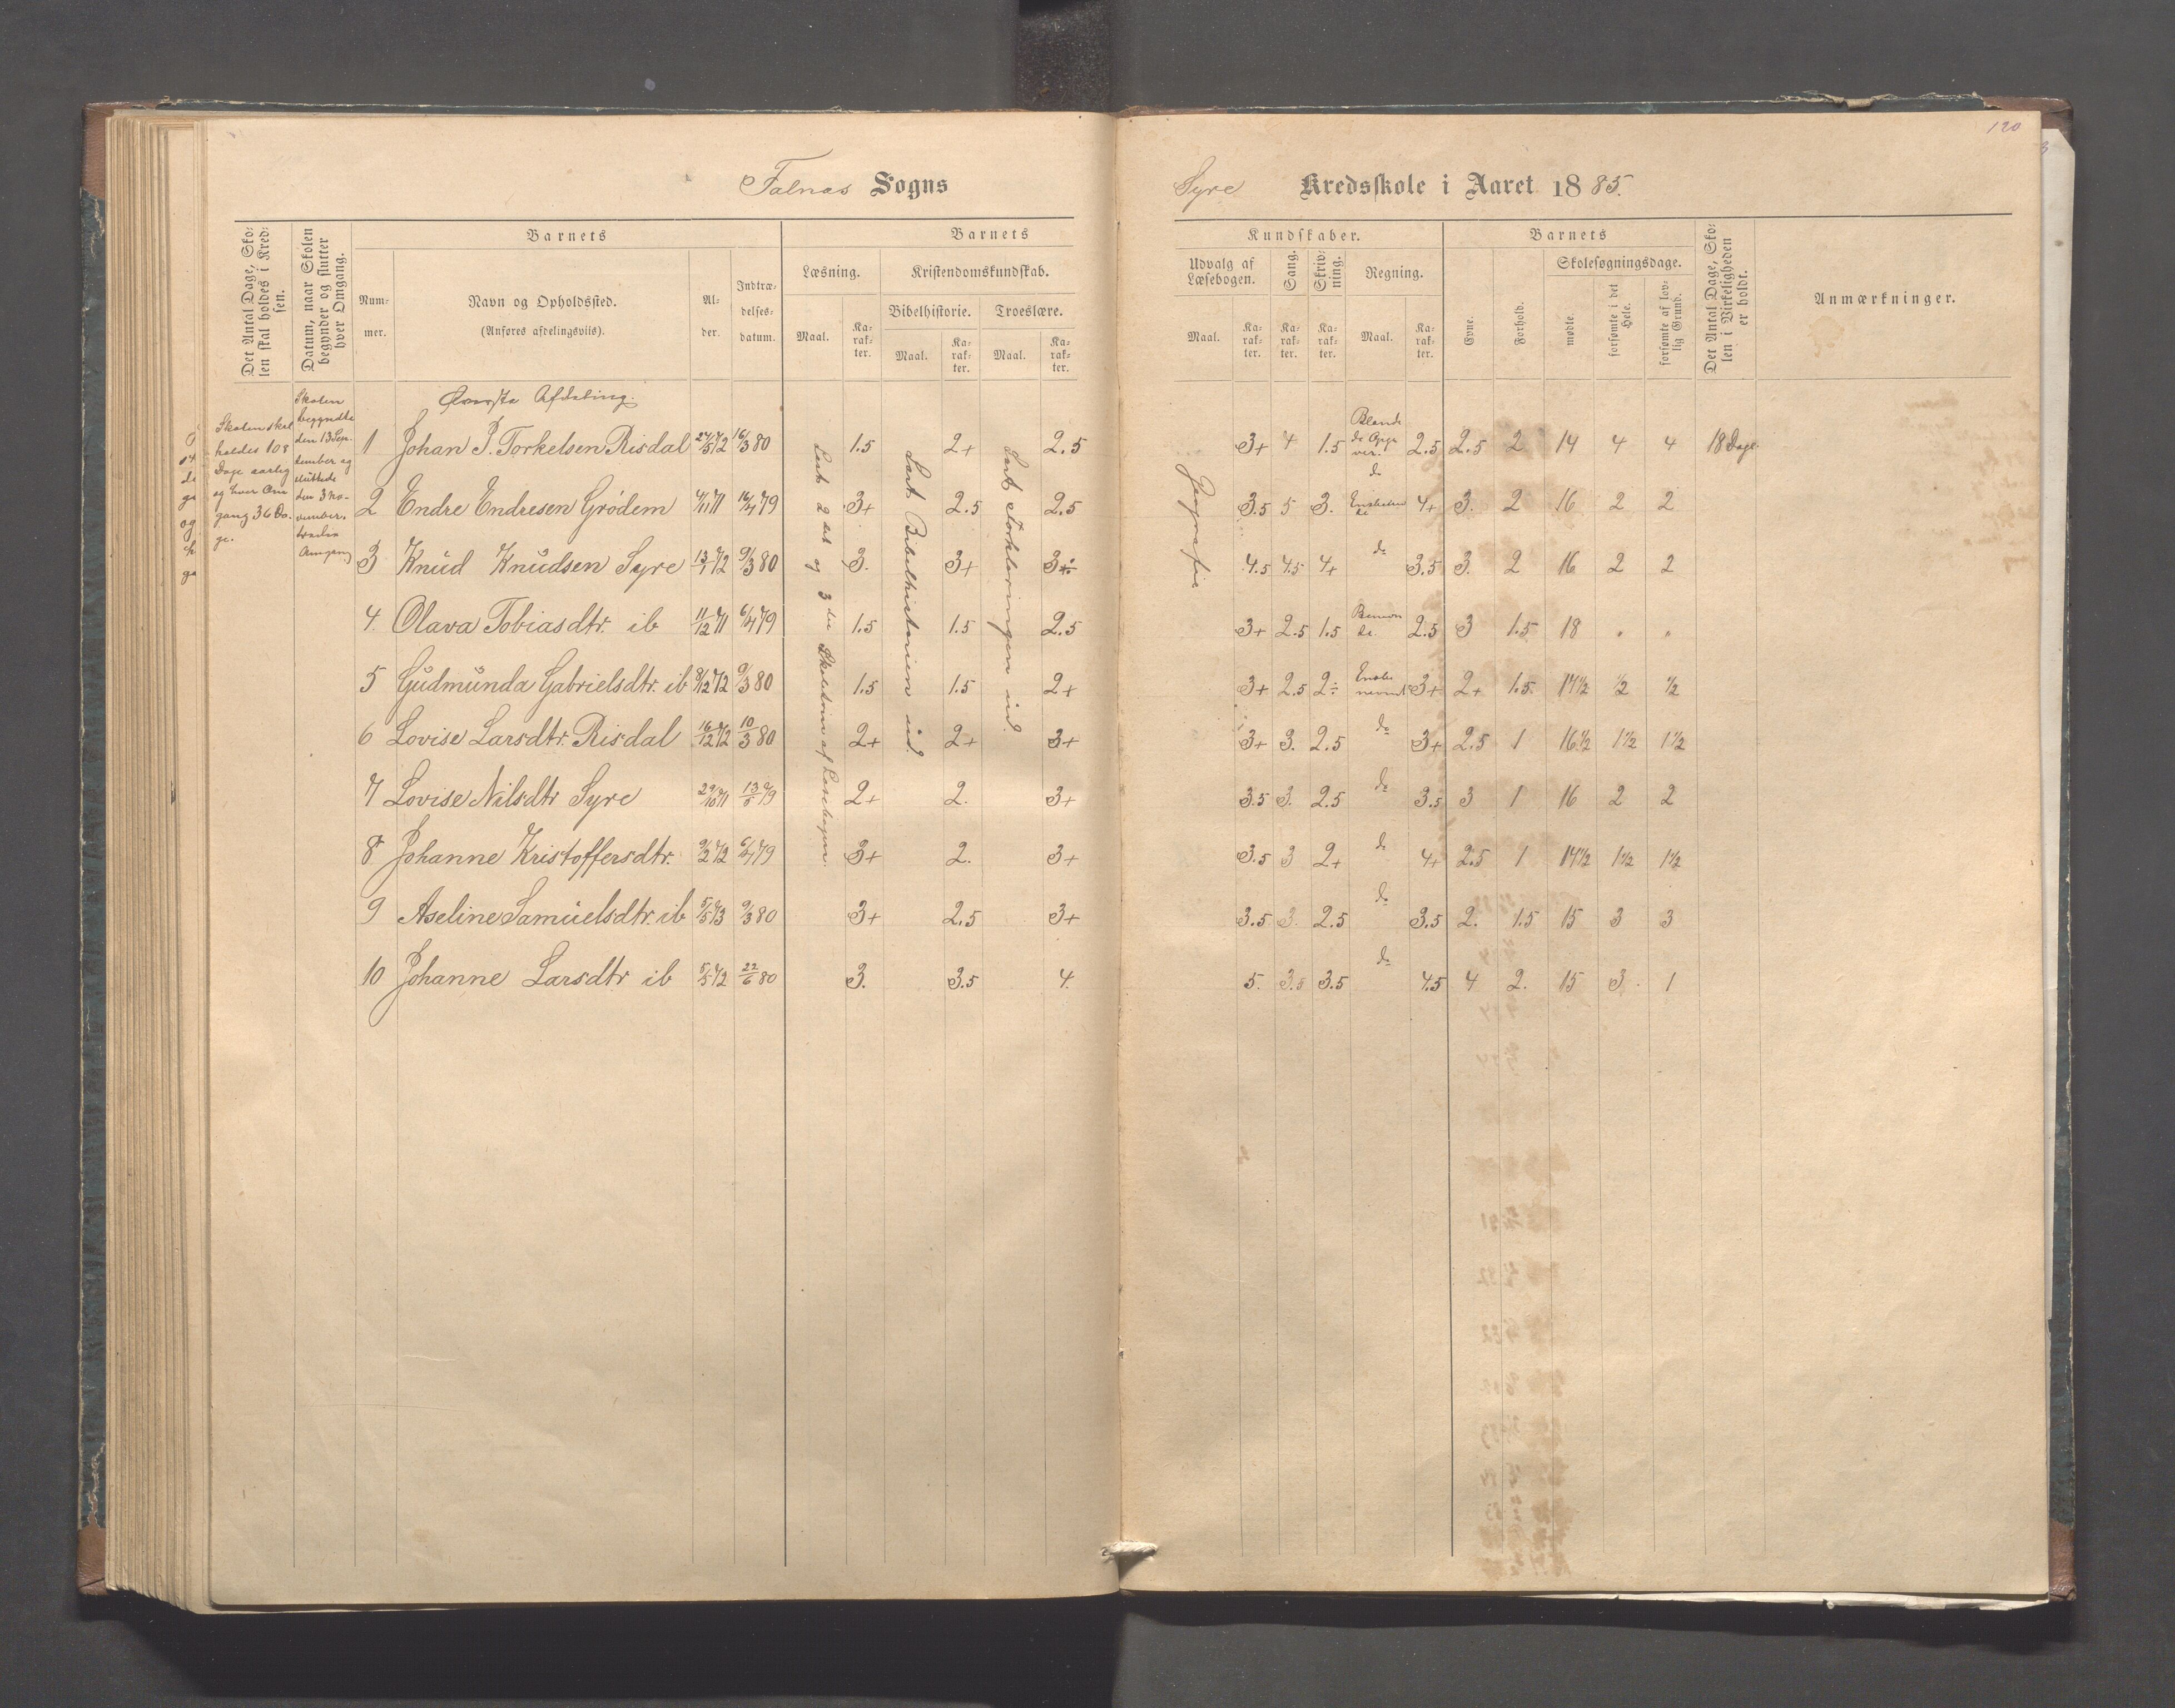 120
Falnæs Sogns
Syre Kredsskole i Aaret 1885.
Det Antal Dage, Sko-
len skal holdes i Kred-
sen.
Datum, naar Skolen
begynder og slutter
hver Omgang.
Barnets
Num-
mer.
Navn og Opholdssted.
(Anføres afdelingsviis).
Al-
der.
Indtræ-
delses-
datum.
Barnets
Læsning.
Maal.
Ka-
rak-
ter.
Kristendomskundskab.
Bibelhistorie.
Maal.
Ka-
rak-
ter.
Troeslære.
Maal.
Ka-
rak-
ter.
Kundskaber.
Udvalg af
Læsebogen.
Maal.
Ka-
rak-
ter.
Sang.
Ka-
rak-
ter.
Skriv-
ning.
Ka-
rak-
ter.
Regning.
Maal.
Ka-
rak-
ter.
Barnets
Evne.
Forhold.
Skolesøgningsdage.
mødte.
forsømte i det
Hele.
forsømte af lov-
lig Grund.
Det Antal Dage, Sko-
len i Virkeligheden
er holdt.
Anmærkninger.
Skolen skal
holdes 108
Dage aarlig
og hver Om
gang 36 Da-
ge.
Skolen
begyndte
den 13 Sep-
tember og
sluttede
den 3 No-
vember.
tredie
Omgang
Øverste Afdeling.
Læst 2det og 3die Skoletrin af Læsebogen.
Læst Bibelhistorien ud.
Læst Forklaringen ud.
Geografie
1 Johan P. Torkelsen Risdal 24/5 72 16/3 80 1.5 2+ 2.5 3+ 4 1.5 Blande de Opga ver. 2.5 2.5 2 14 4 4 18 Dage
2 Endre Endresen Grødem 4/11 71 16/4 79 3+ 2.5 2.5 3.5 5 3. do 4+ 3. 2 16 2 2
3 Knud Knudsen Syre 13/1 72 9/3 80 3. 3+ 3÷ 4.5 4.5 4+ do 3.5 3. 2 16 2 2
4. Olava Tobiasdtr. ib 11/12 71 6/4 79 1.5 1.5 2.5 3+ 2.5 1.5 2.5 3 1.5 18 " "
5 Gudmunda Gabrielsdtr. ib 8/12 72 9/3 80 1.5 1.5 2+ 3+ 2.5 2÷ 3+ 2+ 1.5 17½ ½ ½
6 Lovise Larsdtr. Risdal 16/12 72 10/3 80 2+ 2+ 3+ 3+ 3. 2.5 do 3+ 2.5 1 16½ 1½ 1½
7 Lovise Nilsdtr Syre 29/10 71 13/5 79 2+ 2. 3+ 3.5 3. 2.5 do 3.5 3 1 16 2 2
8 Johanne Kristoffersdtr. 9/2 72 6/4 79 3+ 2. 3+ 3.5 3 2+ do 4+ 2.5 1 14½ 1½ 1½
9 Aseline Samuelsdtr. ib 5/5 73 9/3 80 3+ 2.5 3+ 3.5 3. 2.5 do 3.5 2. 1.5 15 3 3
10 Johanne Larsdtr ib 5/5 72 22/6 80 3. 3.5 4. 5. 3.5 3.5 do 4.5 4 2. 15 3. 1